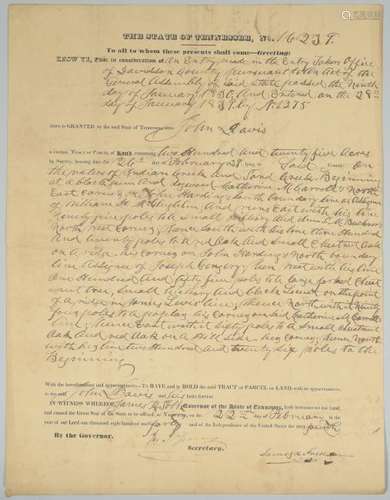 THE STATE OF TENNESSEE, No. 16239.
To all to whom these presents shall come—Greeting:
KNOW YE, THAT in consideration of An Entry made in the Entry Takers Office
of Davidson County pursuant to An Act of the
General Assembly of said State passed the Ninth
day of January 1830, And Entered on the 28th
day of January 1838 by No 1275
there is GRANTED by the said State of Tennessee unto
John Davis
a certain TRACT or PARCEL of LAND containing two Hundred and twenty five Acres
by Survey, bearing date the 26th day of February 1838 Said County On
the waters of Indian Creek and Pond Creek Beginning
at a black gum and dogwood Catherine M Garrett's North
East corner in John Hardings South boundary line as Assignee
of William H. McLaughlin and runs East with his line
poles to a small hickory and dwood
North West Corner, thence South with his line One Hundred
And twenty poles to a red Oak and Small Chestnut Oak
on a ridge his corner on John Hardings North boundary
line Assignee of Joseph then West with his line
One Hundred and fifty four poles to a large forked Chest
nut tree, Small hickory and black Locust on the point
of a ridge in James line, thence North with
four poles to a poplar his corner on said Catherine M Garretts
line, thence East with it Sixty poles to a Small chestnut
Oak and red Oak on a Hill side her corner, thence North
with his line two Hundred and twenty six poles to the
Beginning
With the hereditaments and appurtenances—To HAVE and to HOLD the said TRACT or PARCEL OF LAND with its appurtenances,
to the said John Davis and his heirs forever.
IN WITNESS WHEREOF, James K. Polk Governor of the State of Tennessee, hath hereunto set his hand
and caused the Great Seal of the State to be affixed, at Nashville, on the 22nd day of February in the
year of our Lord one thousand eight hundred and and of the Independence of the United States the sixty
By the Governor.
Secretary.